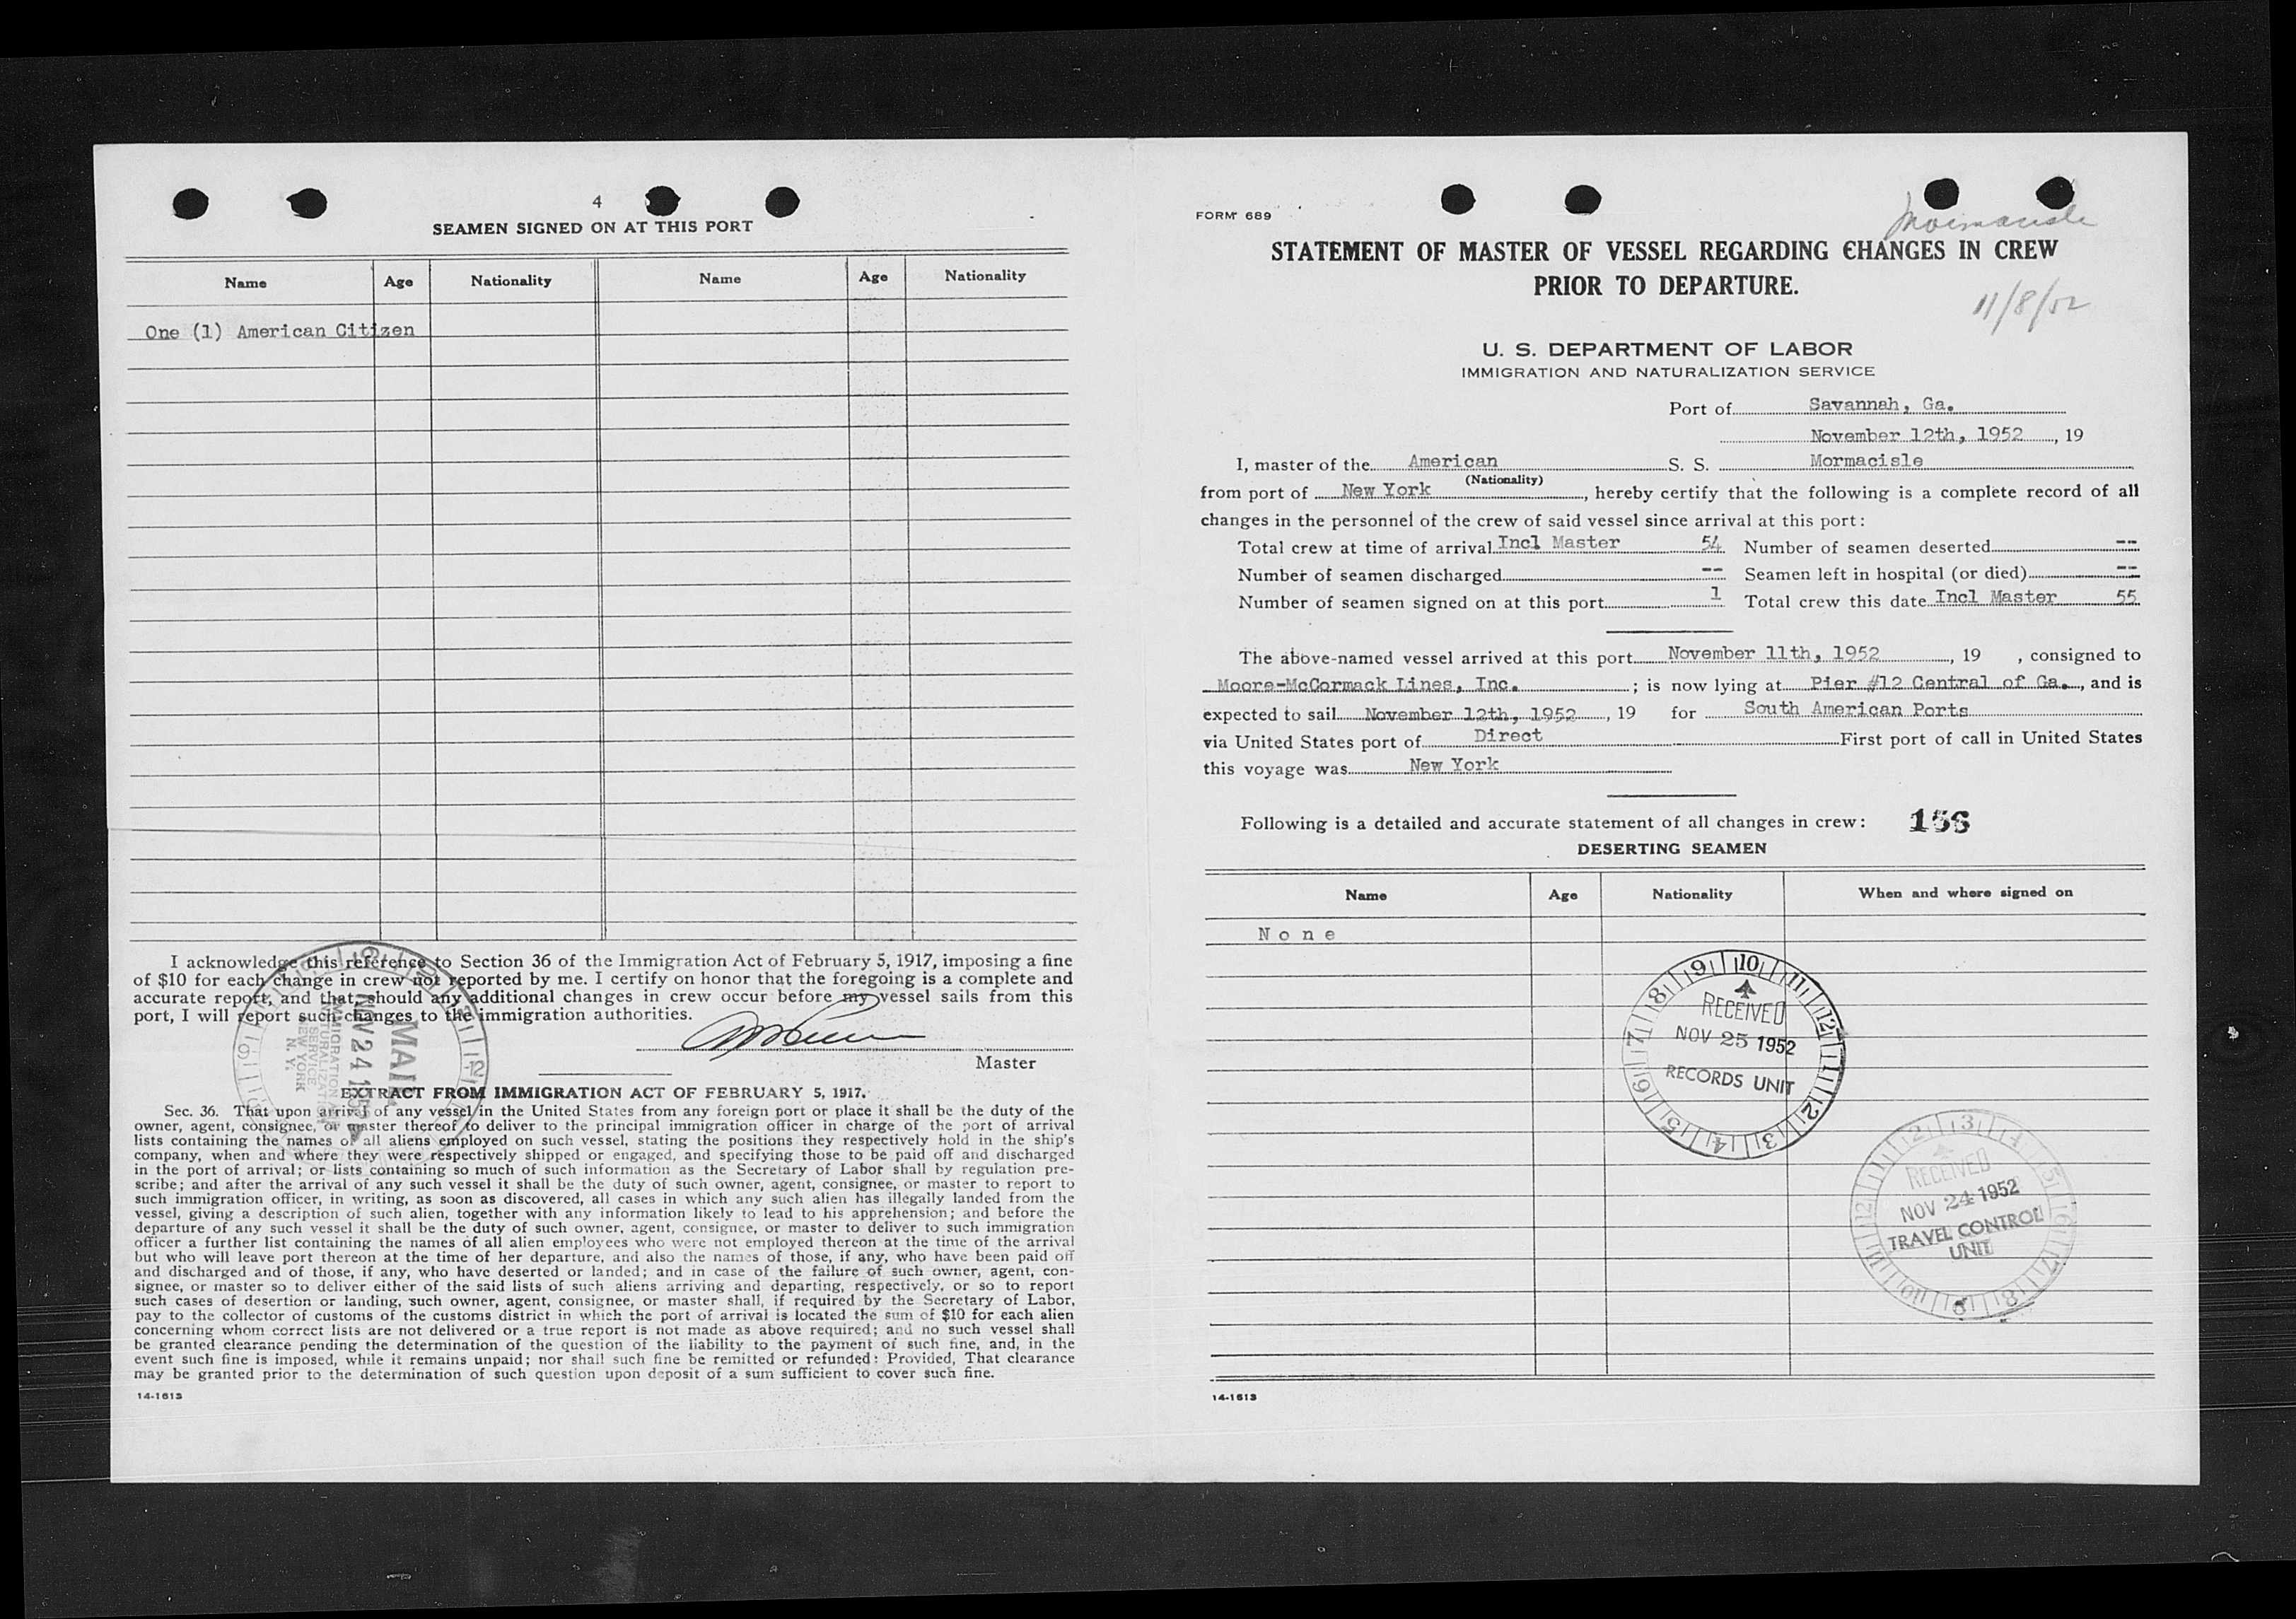 4
SEAMEN SIGNED ON AT THIS PORT
Name Age Nationality Name Age Nationality
One (1) American Citizen
I acknowledge this reference to Section 36 of the Immigration Act of February 5, 1917, imposing a fine
of $10 for each change in crew not reported by me. I certify on honor that the foregoing is a complete and
accurate report, and that, should any additional changes in crew occur before my vessel sails from this
port, I will report such changes to the immigration authorities.
Master
MAIL
NOV 24 195
IMMIGRATION
NATURALIZATION
SERVICE
NEW YORK
N. Y.
EXTRACT FROM IMMIGRATION ACT OF FEBRUARY 5, 1917.
Sec. 36. That upon arrival of any vessel in the United States from any foreign port or place it shall be the duty of the
owner, agent, consignee, or master thereof to deliver to the principal immigration officer in charge of the port of arrival
lists containing the names of all aliens employed on such vessel, stating the positions they respectively hold in the ship's
company, when and where they were respectively shipped or engaged, and specifying those to be paid off and discharged
in the port of arrival; or lists containing so much of such information as the Secretary of Labor shall by regulation pre-
scribe; and after the arrival of any such vessel it shall be the duty of such owner, agent, consignee, or master to report to
such immigration officer, in writing, as soon as discovered, all cases in which any such alien has illegally landed from the
vessel, giving a description of such alien, together with any information likely to lead to his apprehension; and before the
departure of any such vessel it shall be the duty of such owner, agent, consignee, or master to deliver to such immigration
officer a further list containing the names of all alien employees who were not employed thereon at the time of the arrival
but who will leave port thereon at the time of her departure, and also the names of those, if any, who have been paid off
and discharged and of those, if any, who have deserted or landed; and in case of the failure of such owner, agent, con-
signee, or master so to deliver either of the said lists of such aliens arriving and departing, respectively, or so to report
such cases of desertion or landing, such owner, agent, consignee, or master shall, if required by the Secretary of Labor,
pay to the collector of customs of the customs district in which the port of arrival is located the sum of $10 for each alien
concerning whom correct lists are not delivered or a true report is not made as above required; and no such vessel shall
be granted clearance pending the determination of the question of the liability to the payment of such fine, and, in the
event such fine is imposed, while it remains unpaid; nor shall such fine be remitted or refunded: Provided, That clearance
may be granted prior to the determination of such question upon deposit of a sum sufficient to cover such fine.
14-1613
FORM 689
Mormacisle
STATEMENT OF MASTER OF VESSEL REGARDING CHANGES IN CREW
PRIOR TO DEPARTURE.
11/8/52
U. S. DEPARTMENT OF LABOR
IMMIGRATION AND NATURALIZATION SERVICE
Port of Savannah, Ga.
November 12th, 1952, 19
I, master of the American S. S. Mormacisle
(Nationality)
from port of New York, hereby certify that the following is a complete record of all
changes in the personnel of the crew of said vessel since arrival at this port:
Total crew at time of arrival Incl Master 54 Number of seamen deserted --
Number of seamen discharged -- Seamen left in hospital (or died) --
Number of seamen signed on at this port 1 Total crew this date Incl Master 55
The above-named vessel arrived at this port November 11th, 1952, 19 , consigned to
Moore-McCormack Lines, Inc. ; is now lying at Pier #12 Central of Ga., and is
expected to sail November 12th, 1952, 19 for South American Ports
via United States port of Direct First port of call in United States
this voyage was New York
Following is a detailed and accurate statement of all changes in crew: 156
DESERTING SEAMEN
Name Age Nationality When and where signed on
None
RECEIVED
NOV 25 1952
RECORDS UNIT
RECEIVED
NOV 24 1952
TRAVEL CONTROL
UNIT
14-1613